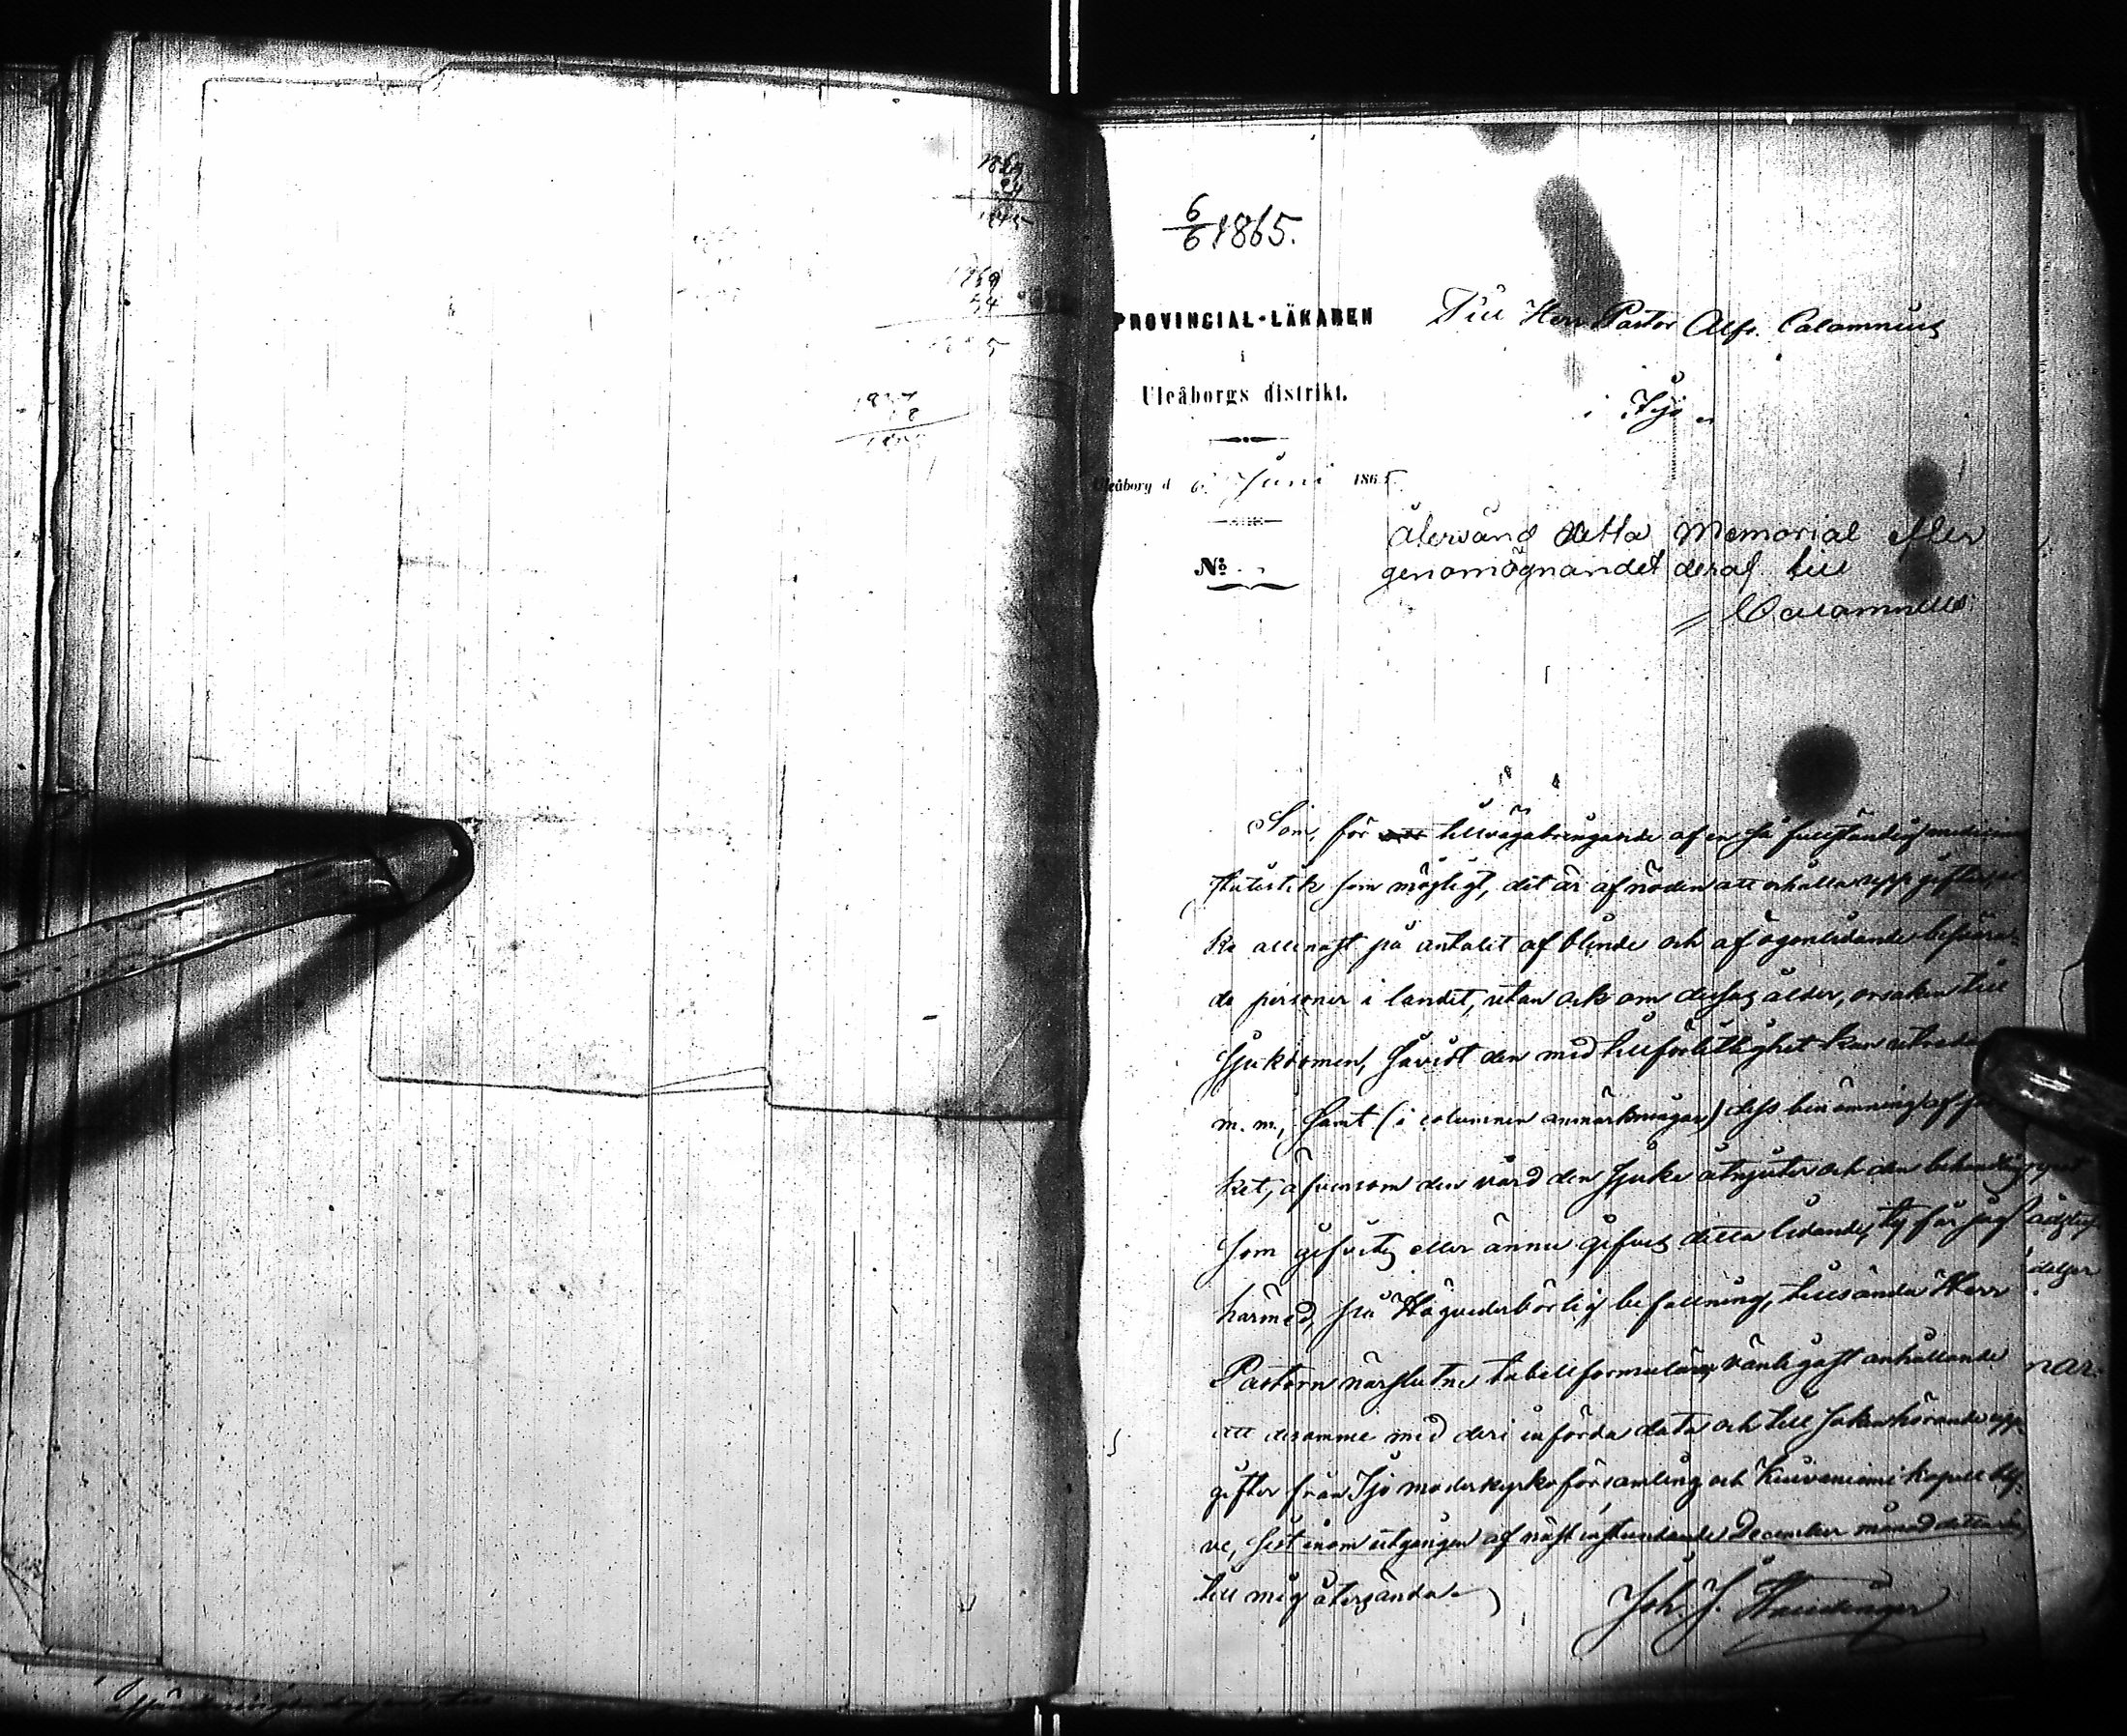 1869
24
1845
1869
54
1865.
6/6 1865.
PROVINCIAL-LÄKAREN
i
Uleåborgs distrikt.
Uleåborg d 6 Juni 1865.
No
Till Herr Pastor Alfr. Calamnius
i Ijo
Återsänd detta Memorial efter
genomögnandet deraf till
Calamnius
Som, för tillvägabringande af en så fullständig medicinsk
statistik som möjligt, det är af nöden att erhålla uppgifter, ic-
ke allenast på antalet af blinde och af ögonlidande besvära-
de personer i landet, utan ock om dessas ålder, orsaken till
sjukdomen, såvidt den med tillförlitlighet kan utredas
m. m., samt (i columnen anmärkningar) dess benämning af
ket, äfvensom den vård den sjuke åtnjuter och den behandling
som gifvits eller ännu gifves detta lidande, ty får jag
härmed, på Högvederbörlig befallning, tillsända Herr
Pastorn närslutne tabellformulär, vänligast anhållande
att desamme med deri införda data och till saken hörande upp-
gifter från Ijo moderkyrkoförsamling och Kiiveniemi kapell blif-
ve, sist inom utgången af näst instundande December månad detta år,
till mig återsända.
Joh. J.